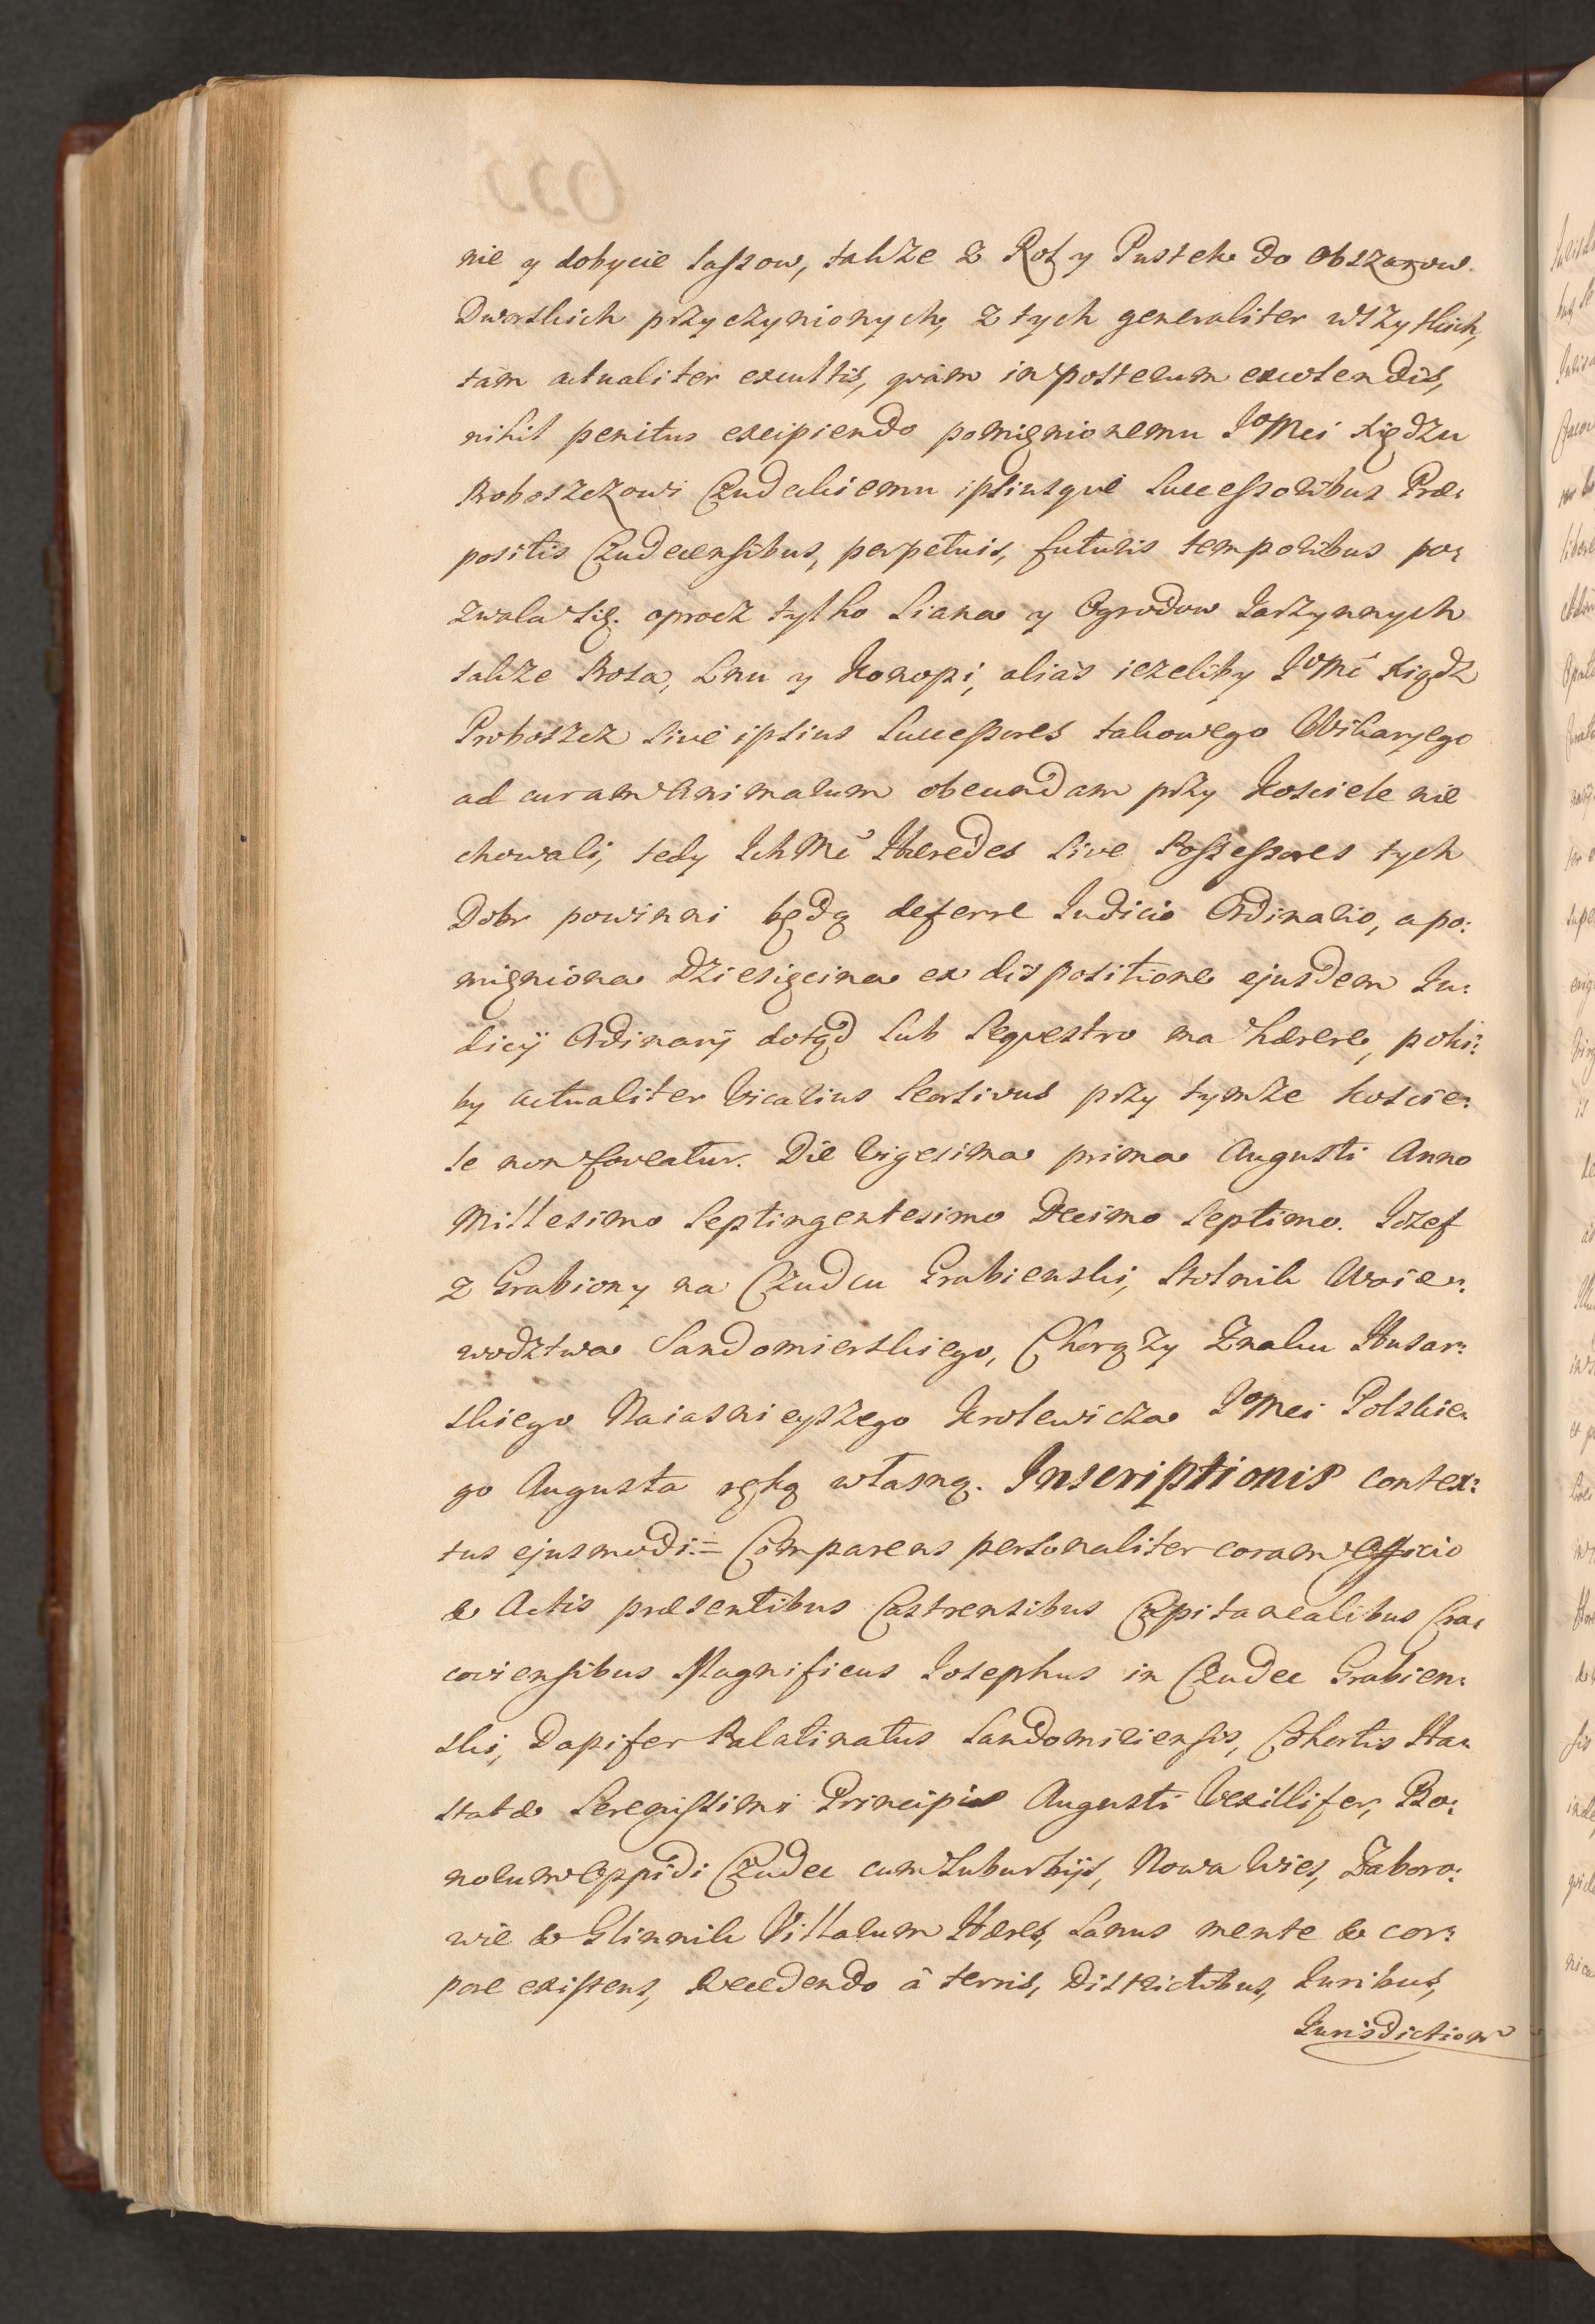 nie y dobycie Lassow, także z Rol y Pustek do Obszarow
Dworskich przyczynionych, z tych generaliter wszystkich,
tàm actualiter excultis, quàm in posterum excolendis,
nihil penitus excipiendo pomięnionemu JoMci Xiędzu
Proboszczowi Czudeckiemu ipsiusque Successoribus Præ:
positis Czudecensibus, perpetuis, futuris temporibus po:
zwala się. oprocz tylko Siana y Ogrodow Jarzynnych
także Prosa, Lnu y Konopi, aliàs ieżeliby JoMć Xiądz
Proboszcz sivè ipsius Successores takowego Wikaryego
ad curam Animarum obeundam przy Kosciele nie
chowali, tedy IchMć Hæredes sive Possessores tych
Dobr powinni będą deferre Judicio Ordinario, a po:
mięniona Dziesięcina ex dispositione ejusdem Ju:
dicij Ordinarij dotąd sub Sequestro ma hærere, poki:
by actualiter Vicarius Seorsivus przy tymże Koscie:
le non foveatur. Die Vigesima prima Augusti Anno
Millesimo Septingentesimo Decimo Septimo. Jozef
z Grabiony na Czudcu Grabienski, Stolnik Woie:
wodztwa Sandomierskiego, Chorąży Znaku Husar:
skiego Naiasnieyszego Krolewicza JoMci Polskie:
go Augusta ręką własną. Inscriptionis contex:
tus ejusmodi:= Comparens personaliter coram Officio
& Actis præsentibus Castrensibus Capitanealibus Cra:
coviensibus Magnificus Josephus in Czudec Grabien:
ski, Dapifer Palatinatus Sandomiriensis, Cohortis Ha:
statæ Serenissimi Principis Augusti Vexillifer, Bo:
norum Oppidi Czudec cum Suburbijs, Nowa Wies, Zaboro:
wie & Glinnik Villarum Hæres, Sanus mente & cor:
pore existens, Recedendo â terris, Districtibus, Juribus,
Jurisdiction